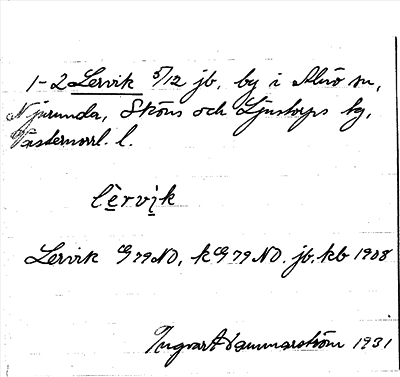 1-2 Lervik 5/12 jb. by i Alnö sn,
Njurunda, Sköns och Ljustorps tg,
Västernorrl. l.
lèrvi̱k
Lervik G79NO, k G79NO. jb, kb 1908
Ingvart Hammarström 1931